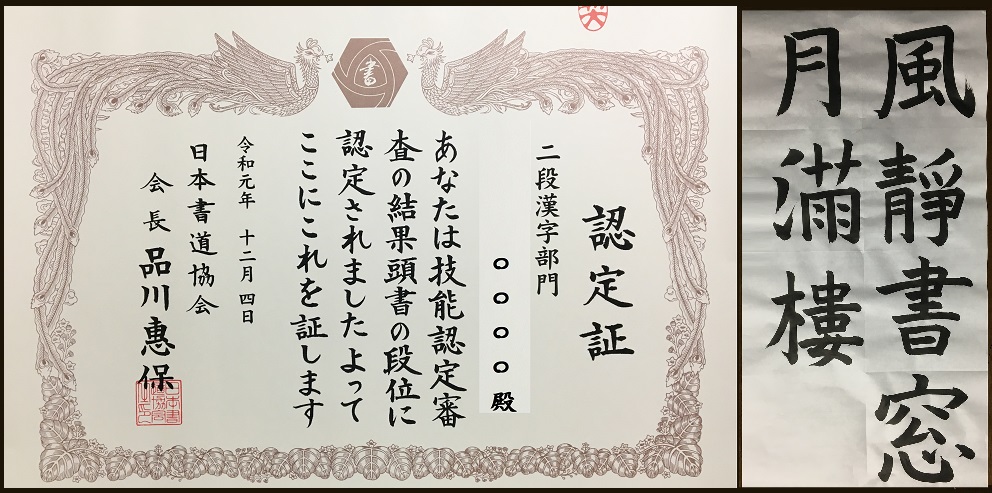 書
認定証
二段漢字部門
○○○○殿
あなたは技能認定審
査の結果頭書の段位に
認定されました よって
ここにこれを証します
令和元年 十二月 四日
日本書道協会
会長 品川惠保
風静書窓
月満樓